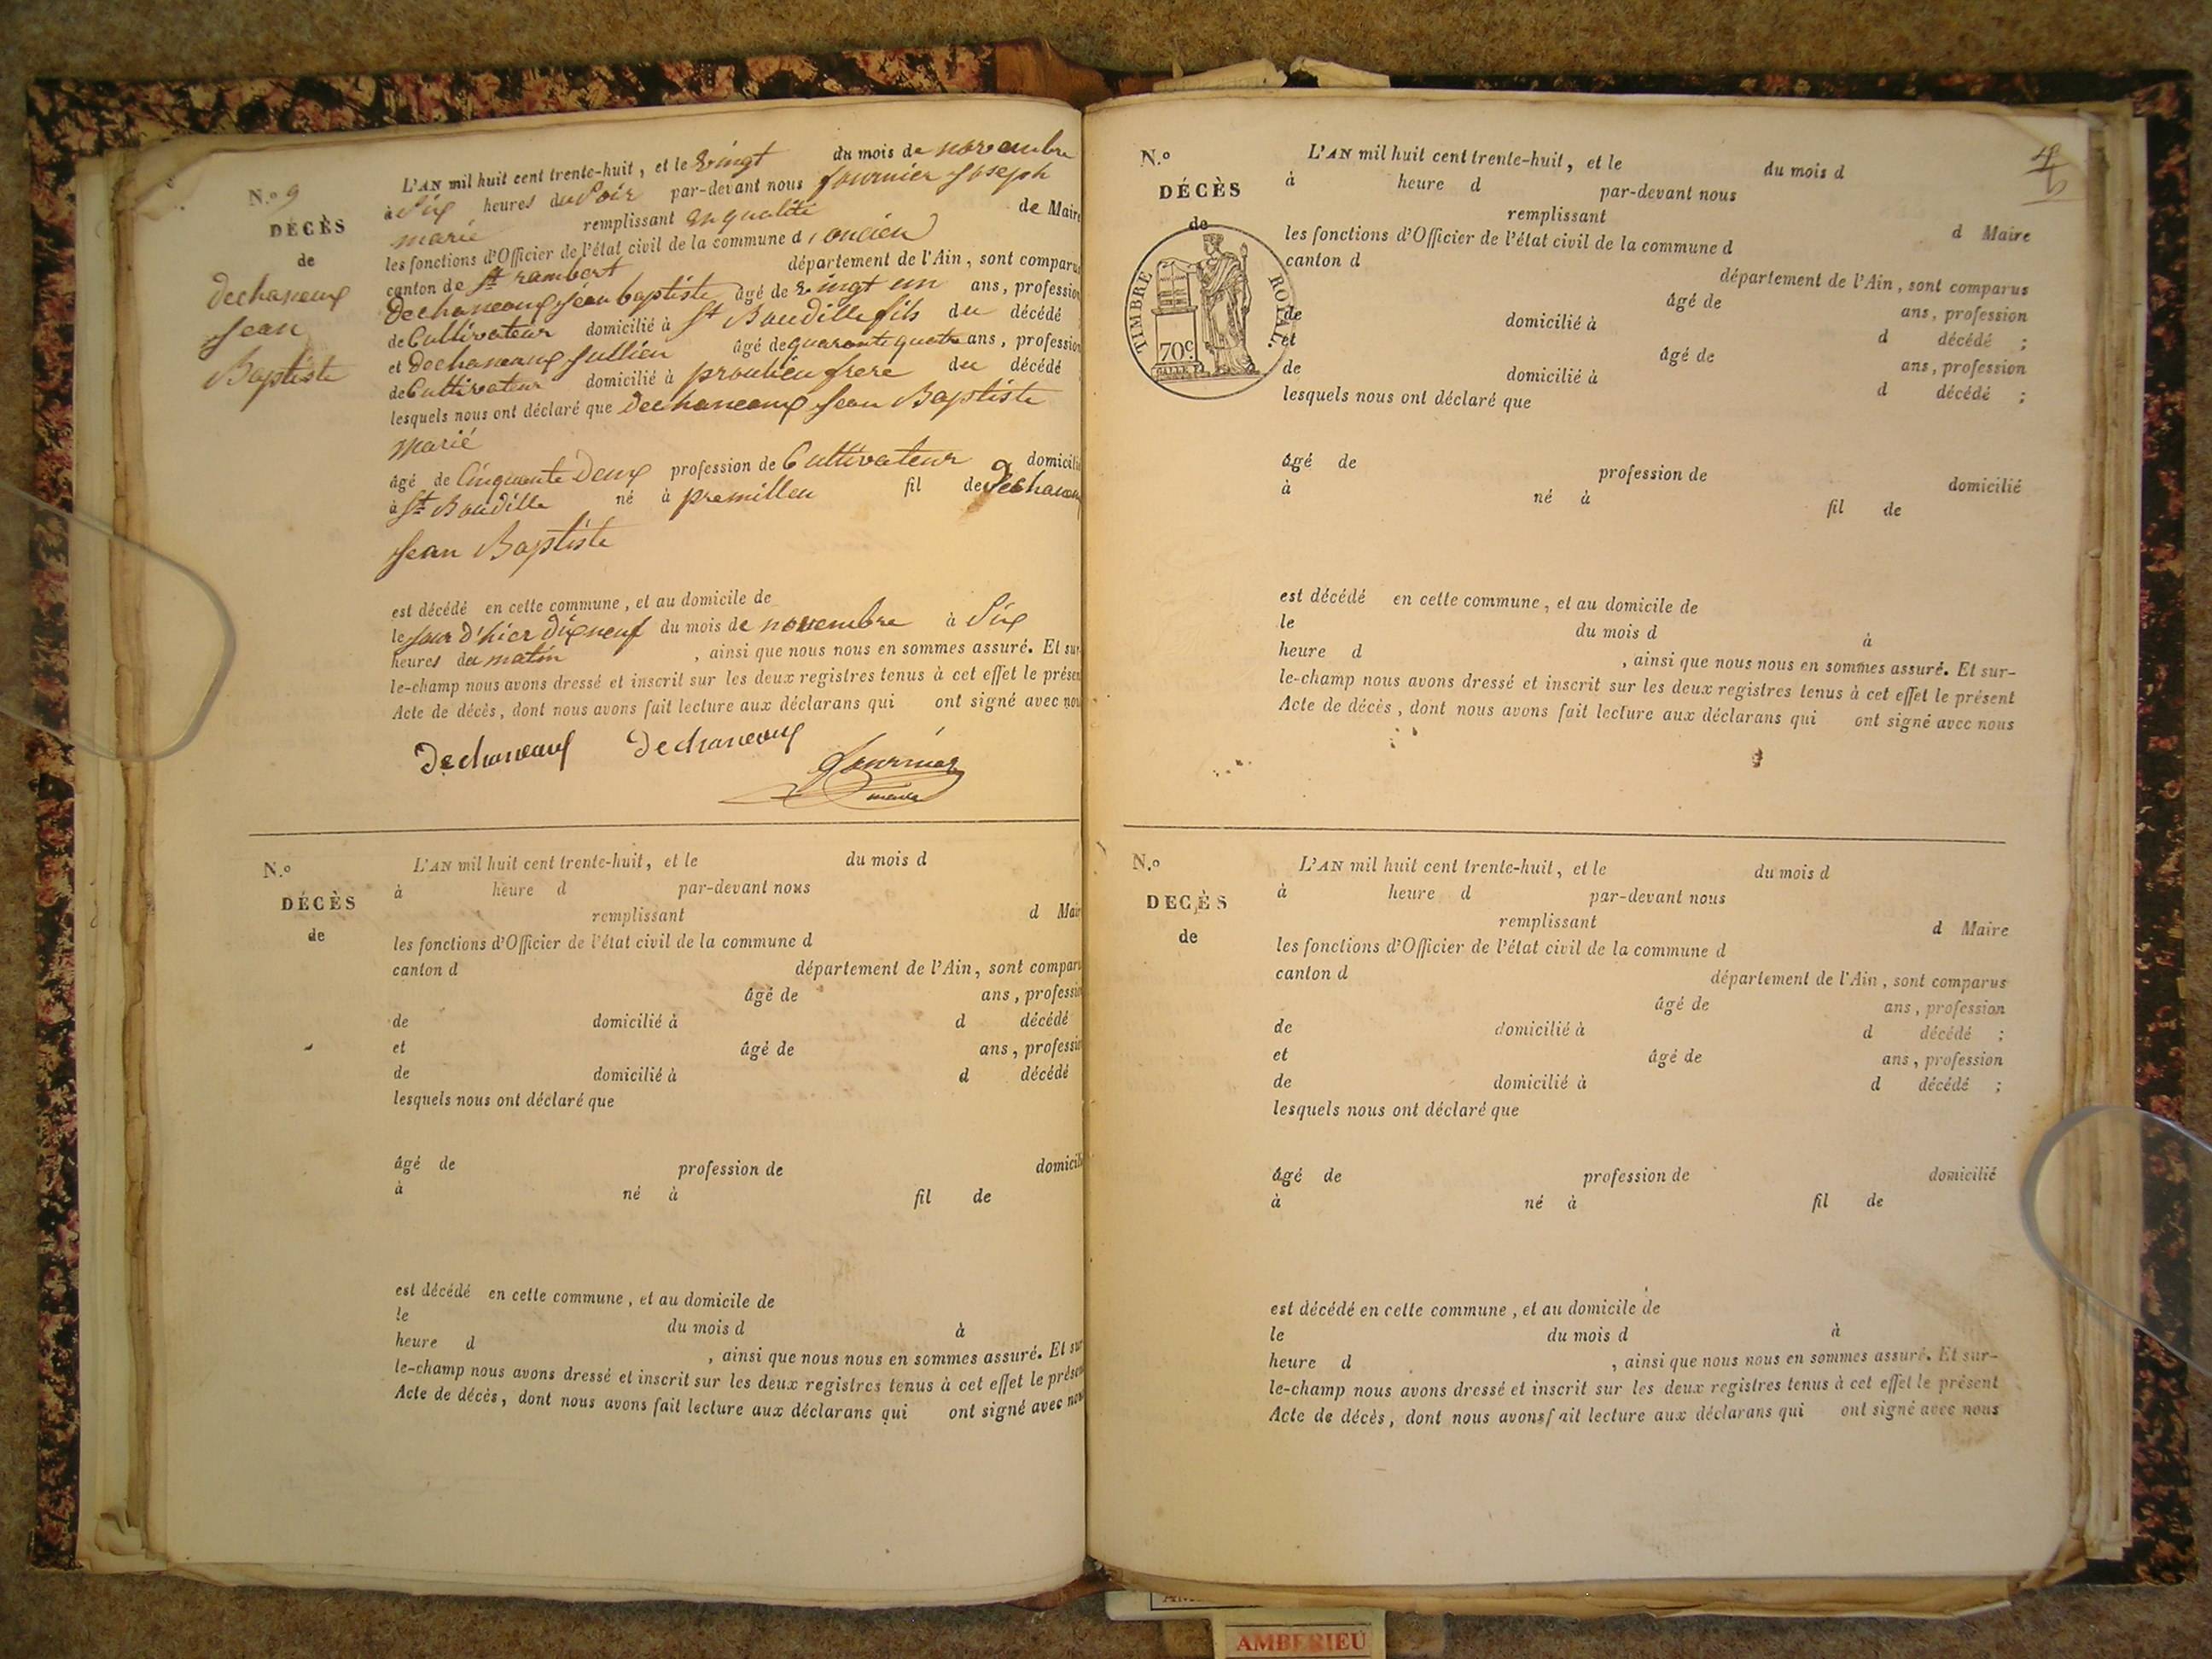 N.º 9
DÉCÈS
de
dechaneaux
Jean
Baptiste
L'AN mil huit cent trente-huit, et le vingt du mois de novembre
à Six heures du Soir par-devant nous fournier Joseph
marié remplissant en qualité de Maire
les fonctions d'Officier de l'état civil de la commune d'oncieu
canton de St rambert département de l'Ain, sont comparus
dechaneaux jean baptiste âgé de vingt un ans, profession
de Cultivateur domicilié à St Baudille fils du décédé
et dechaneaux Jullien âgé de quarante quatre ans, profession
de Cultivateur domicilié à proulieu frere du décédé
lesquels nous ont déclaré que dechaneaux Jean Baptiste
Marié
âgé de Cinquante Deux profession de Cultivateur domicilié
à St Baudille né à premilleu fil de
Jean Baptiste
est décédé en cette commune, et au domicile de
le Jour d'hier dixneuf du mois de novembre à Six
heures du matin, ainsi que nous nous en sommes assuré. Et sur-
le-champ nous avons dressé et inscrit sur les deux registres tenus à cet effet le présent
Acte de décès, dont nous avons fait lecture aux déclarans qui ont signé avec nous
Dechaneaux Dechaneaux
fournier
maire
N.º
DÉCÈS
de
L'AN mil huit cent trente-huit, et le du mois d
à heure d par-devant nous
remplissant d Maire
les fonctions d'Officier de l'état civil de la commune d
canton d département de l'Ain, sont comparus
âgé de ans, profession
de domicilié à d décédé
et âgé de ans, profession
de domicilié à d décédé
lesquels nous ont déclaré que
âgé de profession de domicilié
à né à fil de
est décédé en cette commune, et au domicile de
le du mois d à
heure d , ainsi que nous nous en sommes assuré. Et sur-
le-champ nous avons dressé et inscrit sur les deux registres tenus à cet effet le présent
Acte de décès, dont nous avons fait lecture aux déclarans qui ont signé avec nous
N.º
DÉCÈS
de
TIMBRE ROYAL.
70c
L'AN mil huit cent trente-huit, et le du mois d
à heure d par-devant nous
remplissant d Maire
les fonctions d'Officier de l'état civil de la commune d
canton d département de l'Ain, sont comparus
âgé de ans, profession
de domicilié à d décédé ;
et âgé de ans, profession
de domicilié à d décédé ;
lesquels nous ont déclaré que
âgé de profession de domicilié
à né à fil de
est décédé en cette commune, et au domicile de
le du mois d à
heure d , ainsi que nous nous en sommes assuré. Et sur-
le-champ nous avons dressé et inscrit sur les deux registres tenus à cet effet le présent
Acte de décès, dont nous avons fait lecture aux déclarans qui ont signé avec nous
N.º
DÉCÈS
de
L'AN mil huit cent trente-huit, et le du mois d
à heure d par-devant nous
remplissant d Maire
les fonctions d'Officier de l'état civil de la commune d
canton d département de l'Ain, sont comparus
âgé de ans, profession
de domicilié à d décédé ;
et âgé de ans, profession
de domicilié à d décédé ;
lesquels nous ont déclaré que
âgé de profession de domicilié
à né à fil de
est décédé en cette commune, et au domicile de
le du mois d à
heure d , ainsi que nous nous en sommes assuré. Et sur-
le-champ nous avons dressé et inscrit sur les deux registres tenus à cet effet le présent
Acte de décès, dont nous avons fait lecture aux déclarans qui ont signé avec nous
AMBERIEU